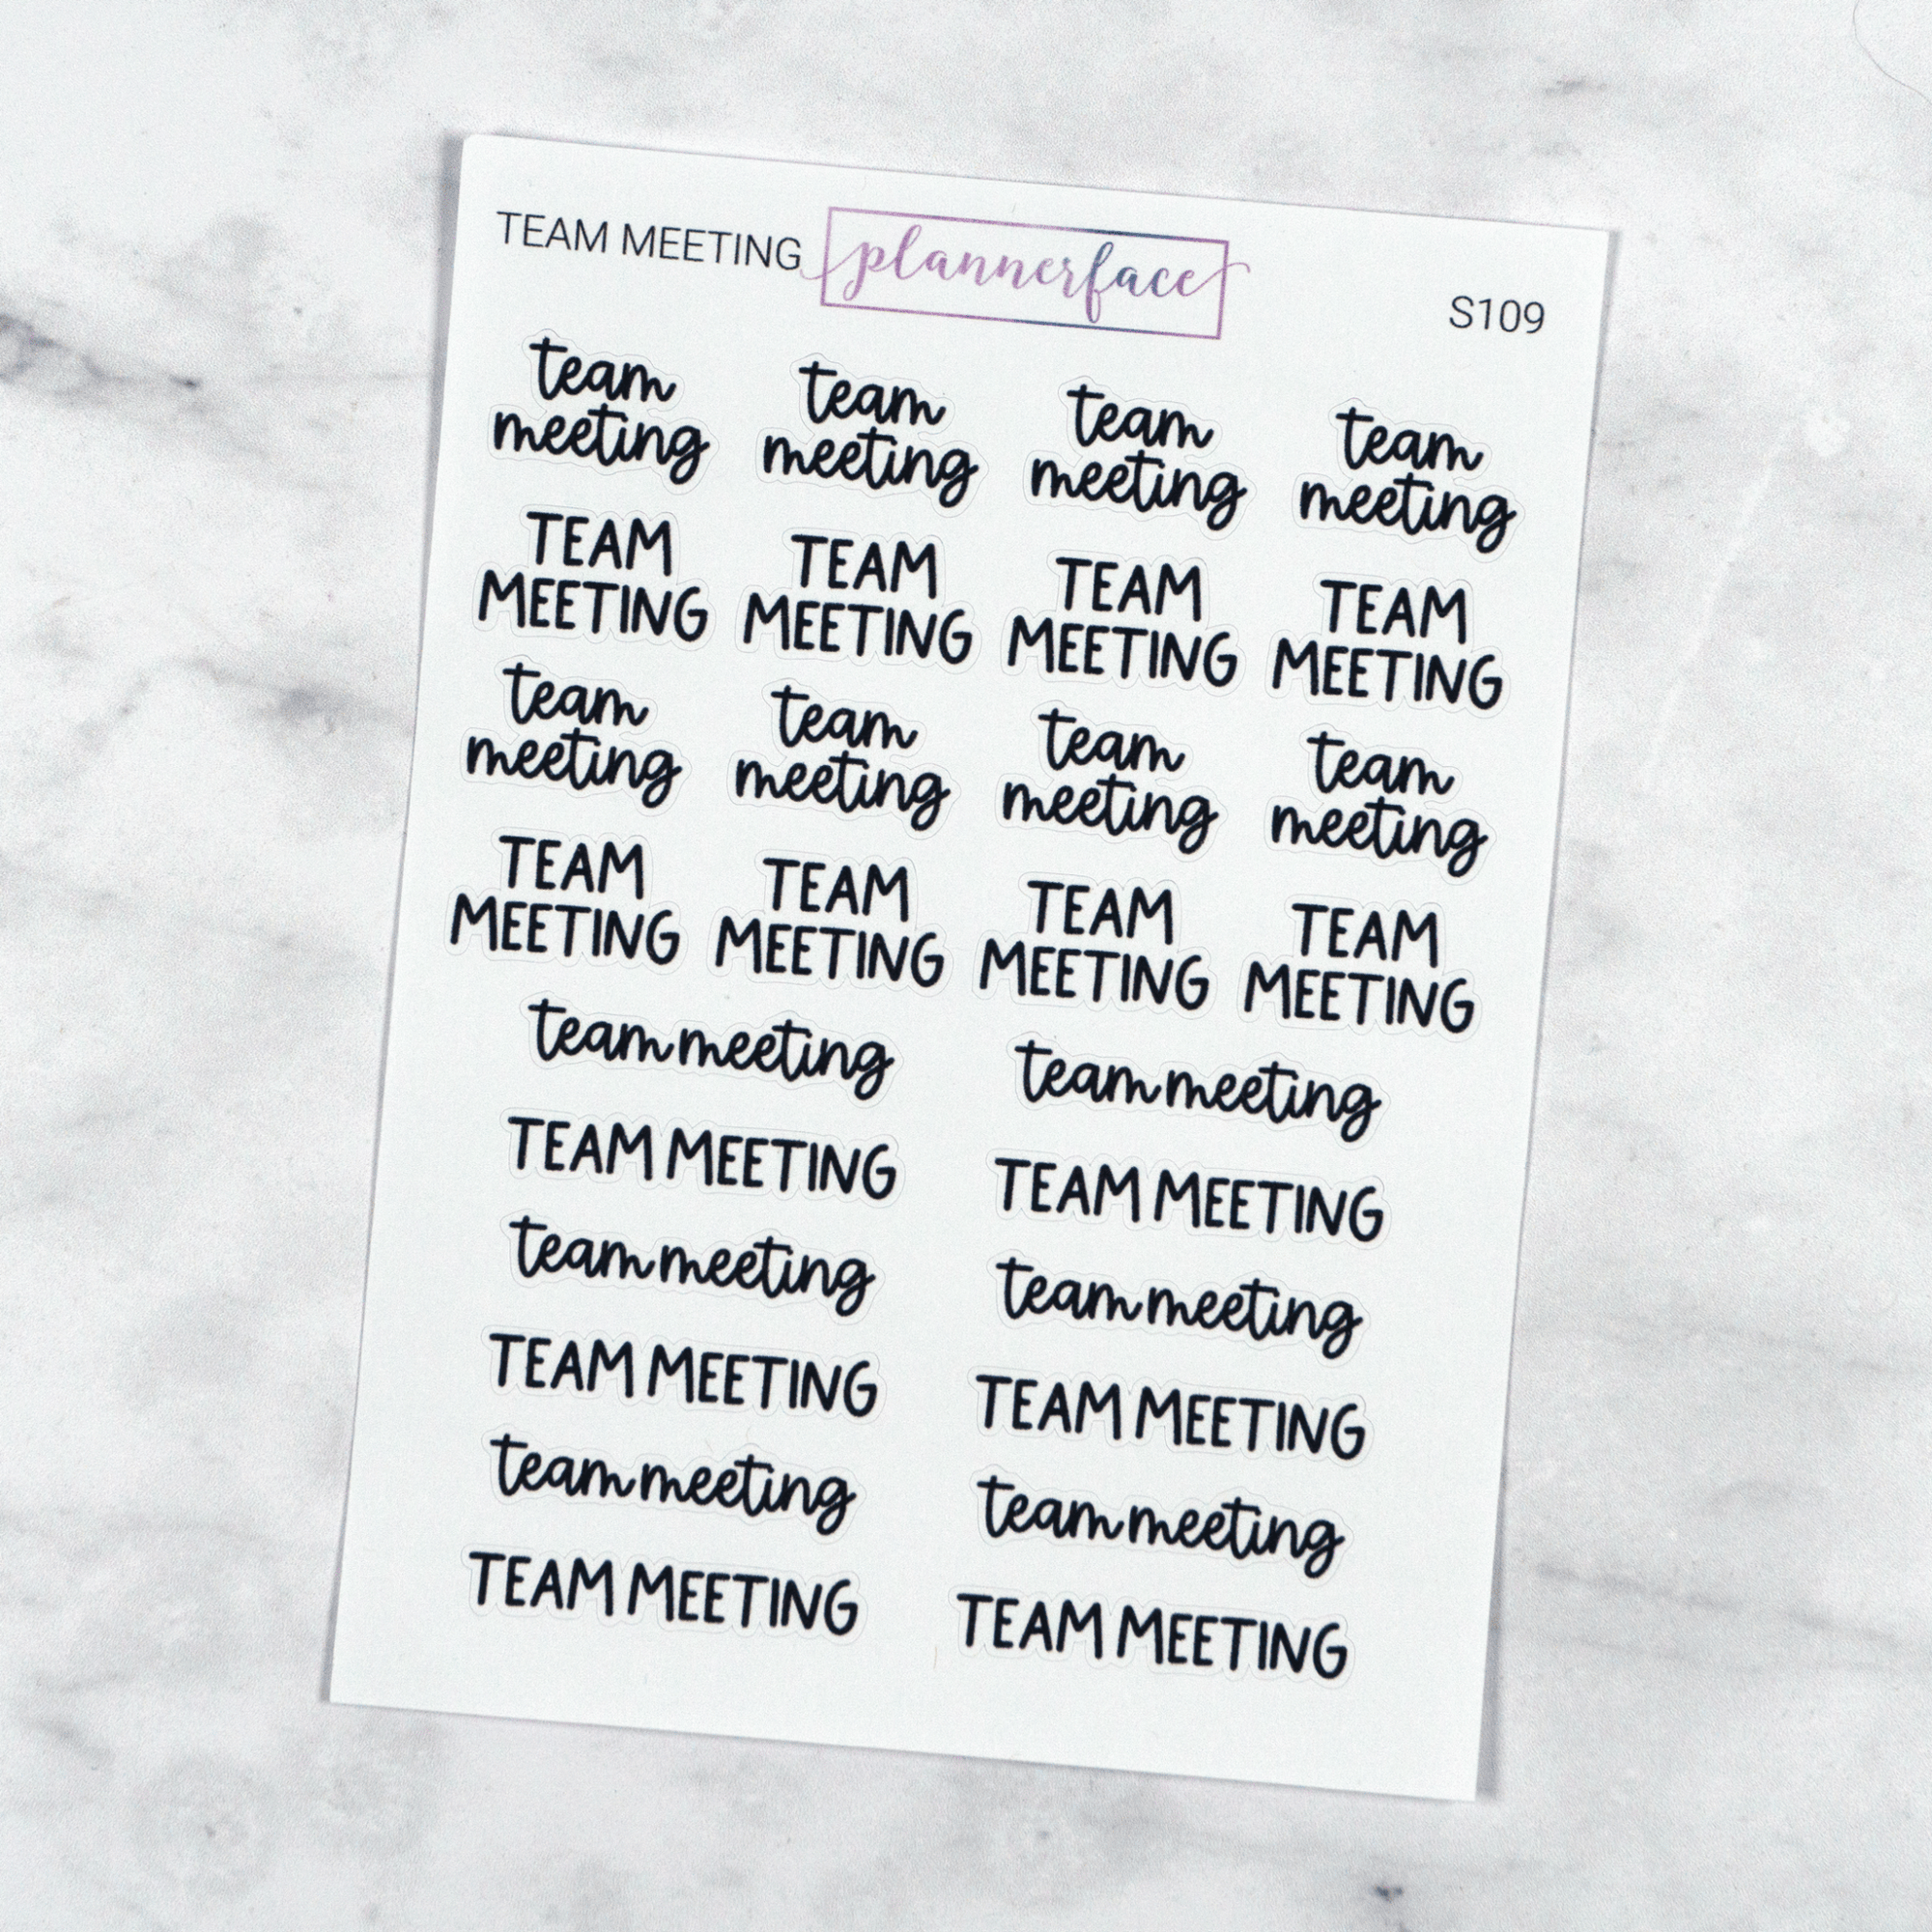 TEAM MEETING plannerface S109
team team team team
meeting meeting meeting meeting
TEAM TEAM TEAM TEAM
MEETING MEETING MEETING MEETING
team team team team
meeting meeting meeting meeting
TEAM TEAM TEAM TEAM
MEETING MEETING MEETING MEETING
team meeting team meeting
TEAM MEETING TEAM MEETING
team meeting team meeting
TEAM MEETING TEAM MEETING
team meeting team meeting
TEAM MEETING TEAM MEETING